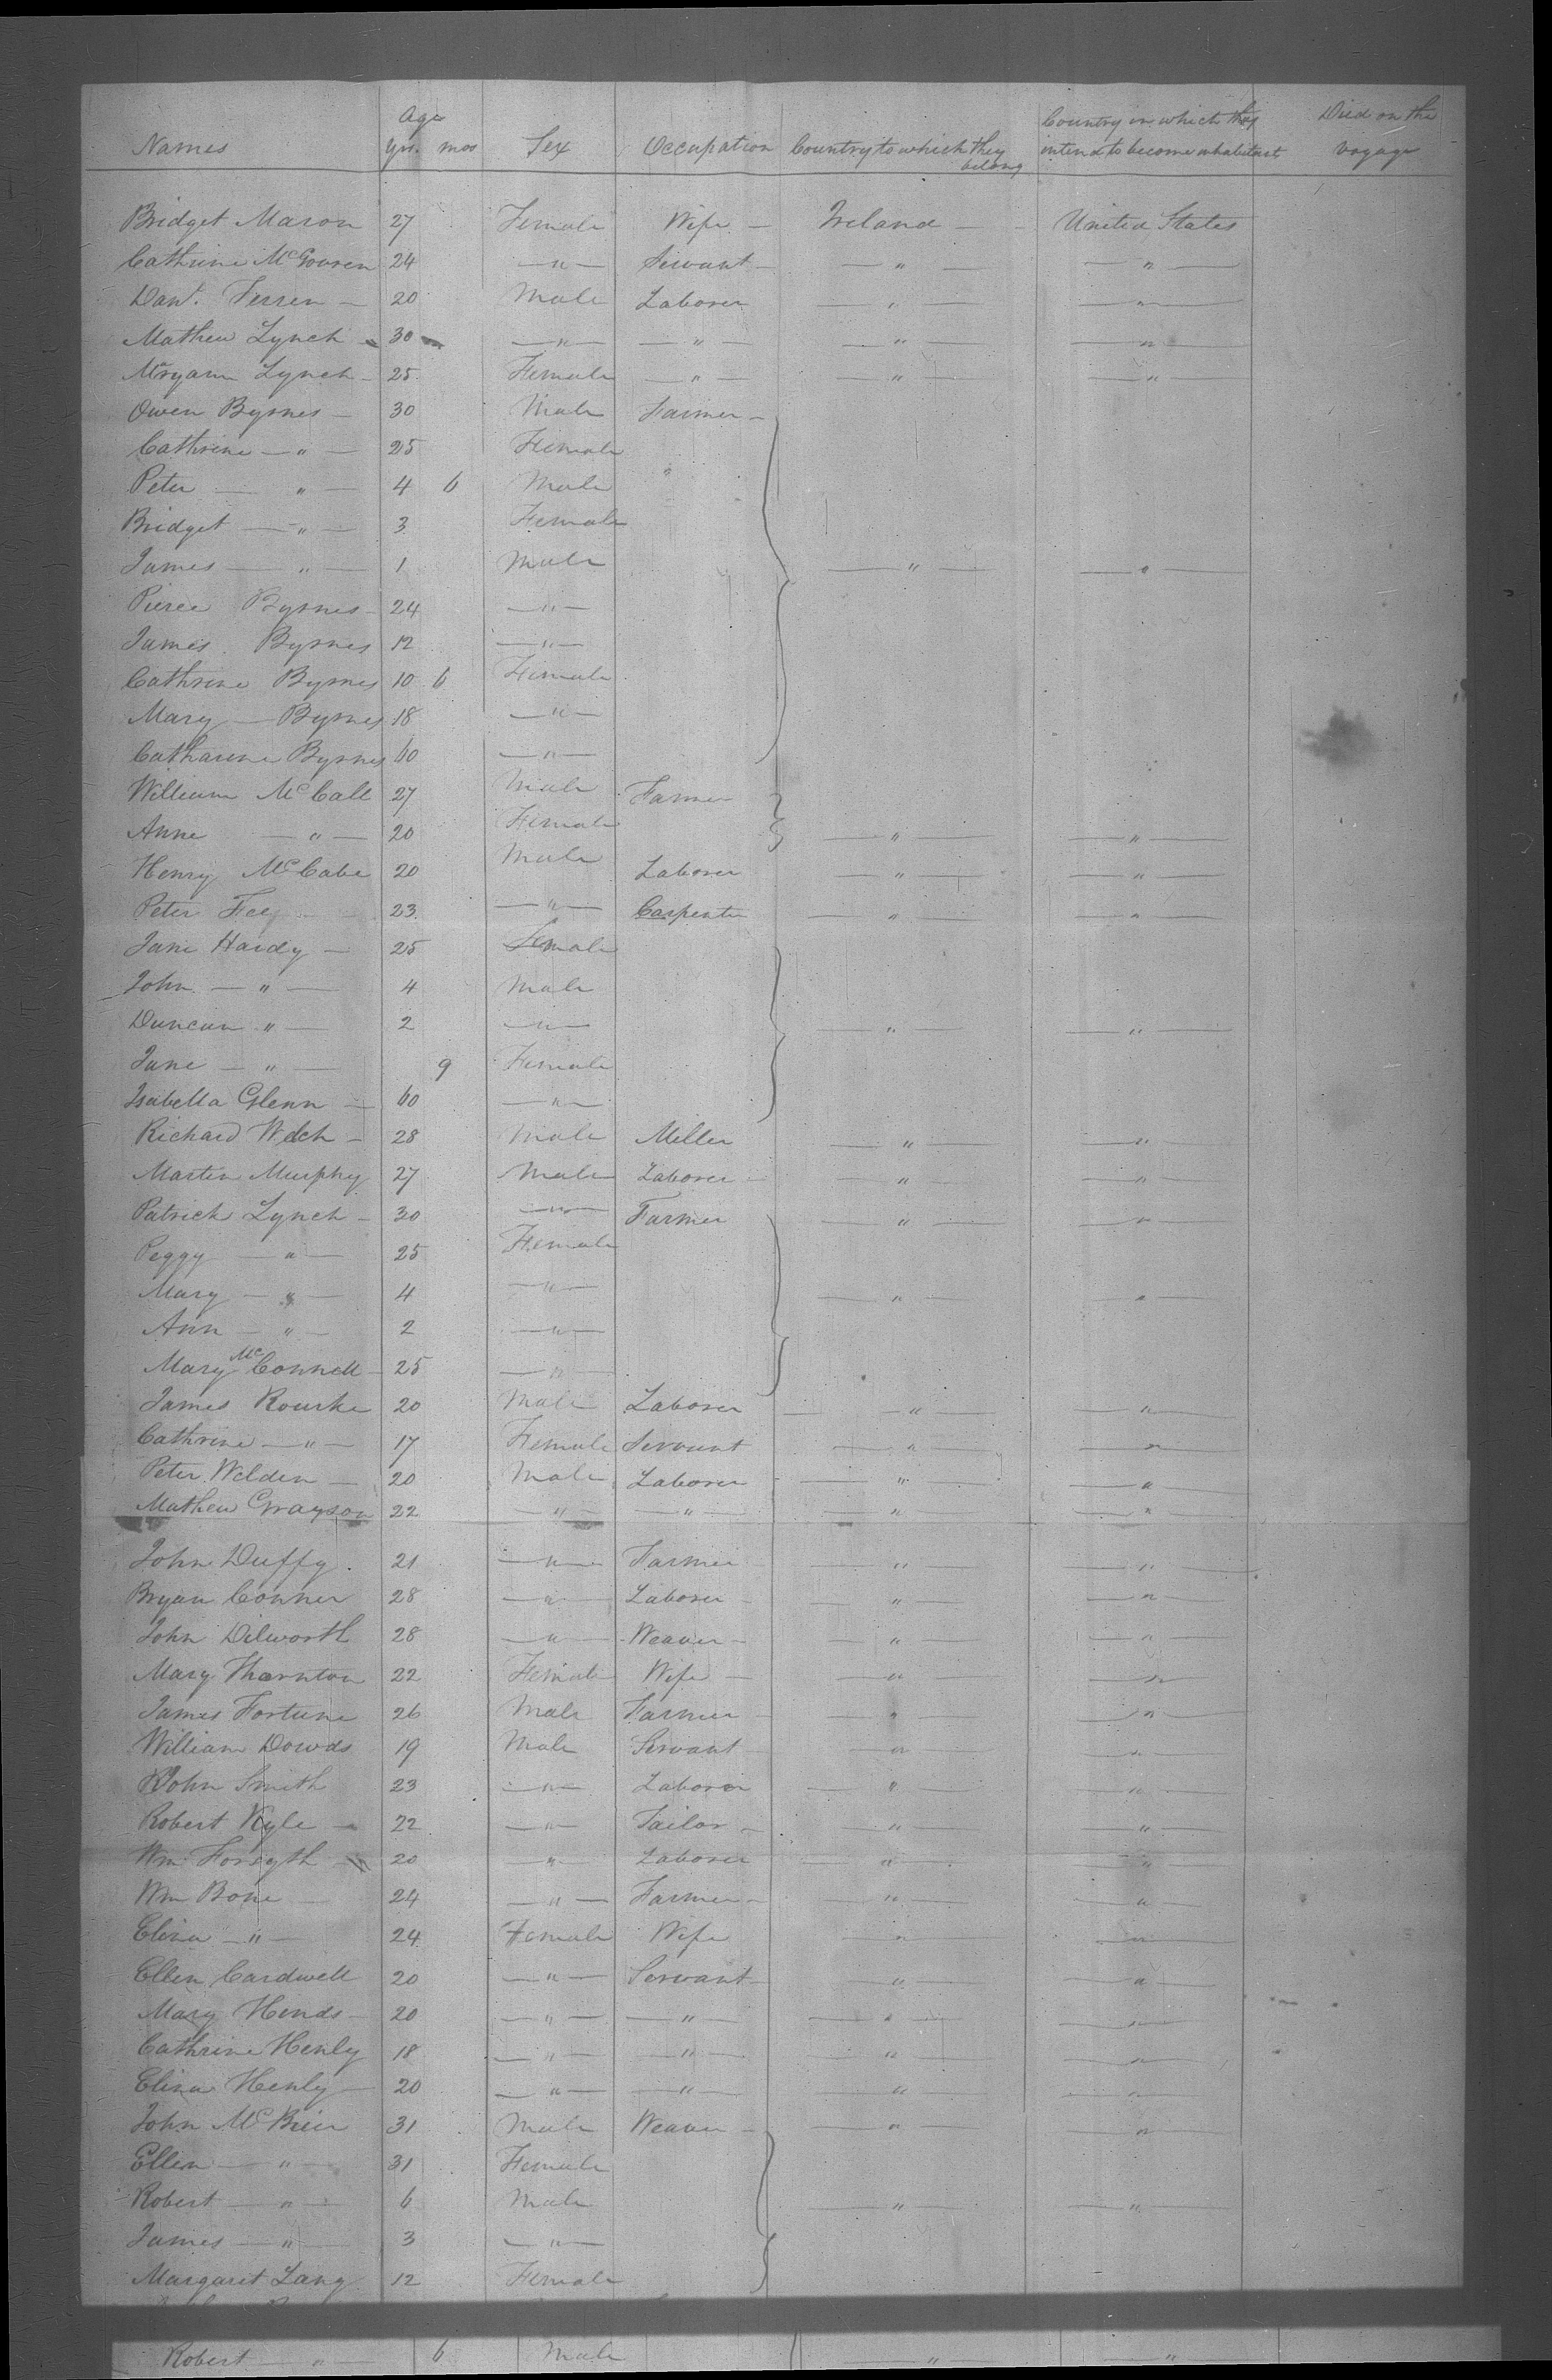 Names Age Yrs. mos Sex Occupation Country to which they belong Country in which they intend to become inhabitant Died on the voyage
Bridget Mason 27 Female Wife — Ireland — United States
Cathrine McGovren 24 — " — Servant — — " — — " —
Danl. Ferren — 20 Male Laborer — " — — " —
Mathew Lynch 30 — " — — " — — " — — " —
Maryann Lynch — 25 Female — " — — " — — " —
Owen Byrnes — 30 Male Farmer —
Cathrine — " — 25 Female
Peter — " — 4 6 Male "
Bridget — " — 3 Female
James — " — 1 Male — " — — " —
Pierce Byrnes — 24 — " —
James Byrnes 12 — " —
Cathrine Byrnes 10 6 Female
Mary — Byrnes 18 — " —
Catharine Byrnes 60 — " —
William McCall 27 Male Farmer
Anne — " — 20 Female — " — — " —
Henry McCabe 20 Male Laborer — " — — " —
Peter Fee 23 — " — Carpenter — " — — " —
Jane Hardy — 25 Female
John — " — 4 Male
Duncan " — 2 — " — — " — — " —
Jane — " — 9 Female
Isabella Glenn — 60 — " —
Richard Welch — 28 Male Miller — " — — " —
Martin Murphy 27 Male Laborer — " — — " —
Patrick Lynch — 30 — " — Farmer — " — — " —
Peggy — " — 25 Female
Mary — " — 4 — " — — " — — " —
Ann — " — 2 — " —
Mary McConnell — 25 — " —
James Rourke 20 Male Laborer — " — — " —
Cathrine — " — 17 Female Servant — " — — " —
Peter Welden — 20 Male Laborer — " — — " —
Mathew Grayson 22 — " — — " — — " — — " —
John Duffy. 21 — " — Farmer — " — — " —
Bryan Conner 28 — " — Laborer — " — — " —
John Dilworth 28 — " — Weaver — — " — — " —
Mary Thornton 22 Female Wife — — " — — " —
James Fortune 26 Male Farmer — — " — — " —
William Dowds 19 Male Servant — " — — " —
John Smith 23 — " — Laborer — " — — " —
Robert Kyle — 22 — " — Tailor — — " — — " —
Wm Forsyth 20 — " — Laborer — " — — " —
Wm Bone — 24 — " — Farmer — — " — — " —
Eliza — " — 24 Female Wife — " — — " —
Ellen Cardwell 20 — " — Servant — — " — — " —
Mary Hends — 20 — " — — " — — " — — " —
Cathrine Henly 18 — " — — " — — " — — " —
Eliza Henly — 20 — " — — " — — " — — " —
John 31 Male Weaver — — " — — " —
Ellen — " — 31 Female
Robert — " — 6 Male — " — — " —
James — " — 3 — " —
Margaret Lang 12 Female
Robert — " — 6 Male — " — — " —